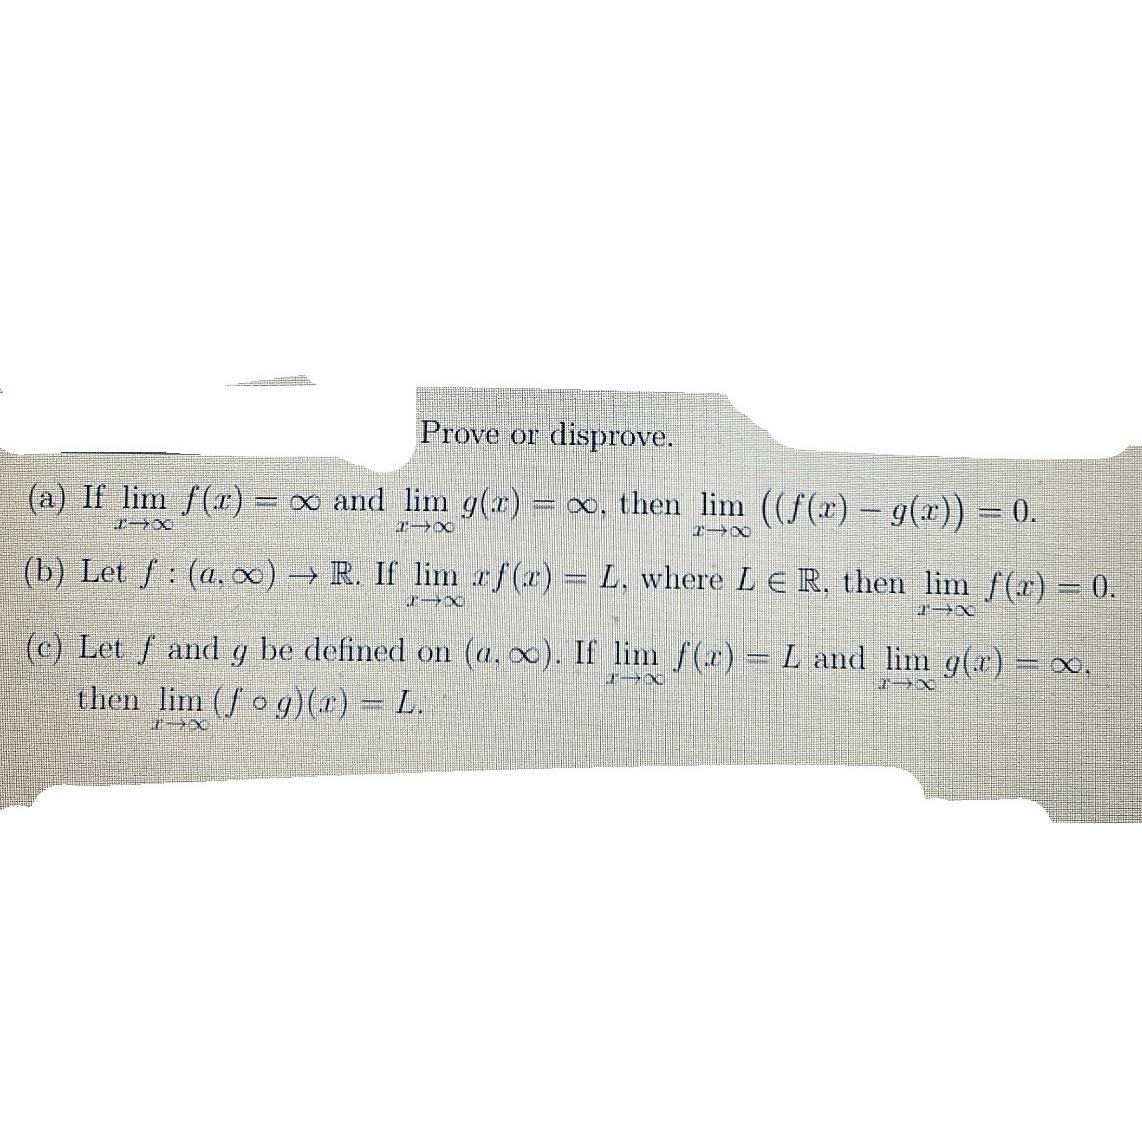 Prove or disprove.
(a) If lim_{x→∞} f(x) = ∞ and lim_{x→∞} g(x) = ∞, then lim_{x→∞} ((f(x) − g(x)) = 0.
(b) Let f : (a, ∞) → ℝ. If lim_{x→∞} xf(x) = L, where L ∈ ℝ, then lim_{x→∞} f(x) = 0.
(c) Let f and g be defined on (a, ∞). If lim_{x→∞} f(x) = L and lim_{x→∞} g(x) = ∞,
then lim_{x→∞} (f ∘ g)(x) = L.